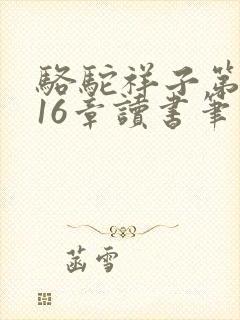 駱駝祥子第
16章讀書筆
菡雪